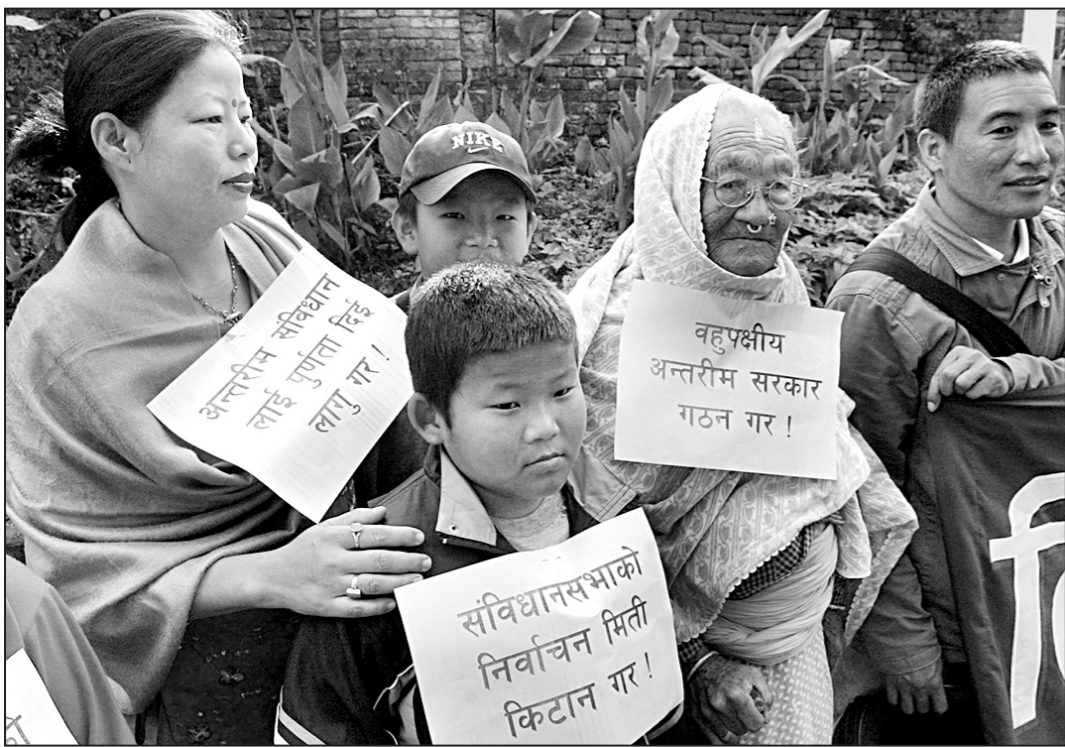 NIKE
अन्तरीम संविधान
लाई पुर्णता दिई
लागु गर !
वहुपक्षीय
अन्तरीम सरकार
गठन गर !
संविधानसभाको
निर्वाचन मिती
किटान गर !